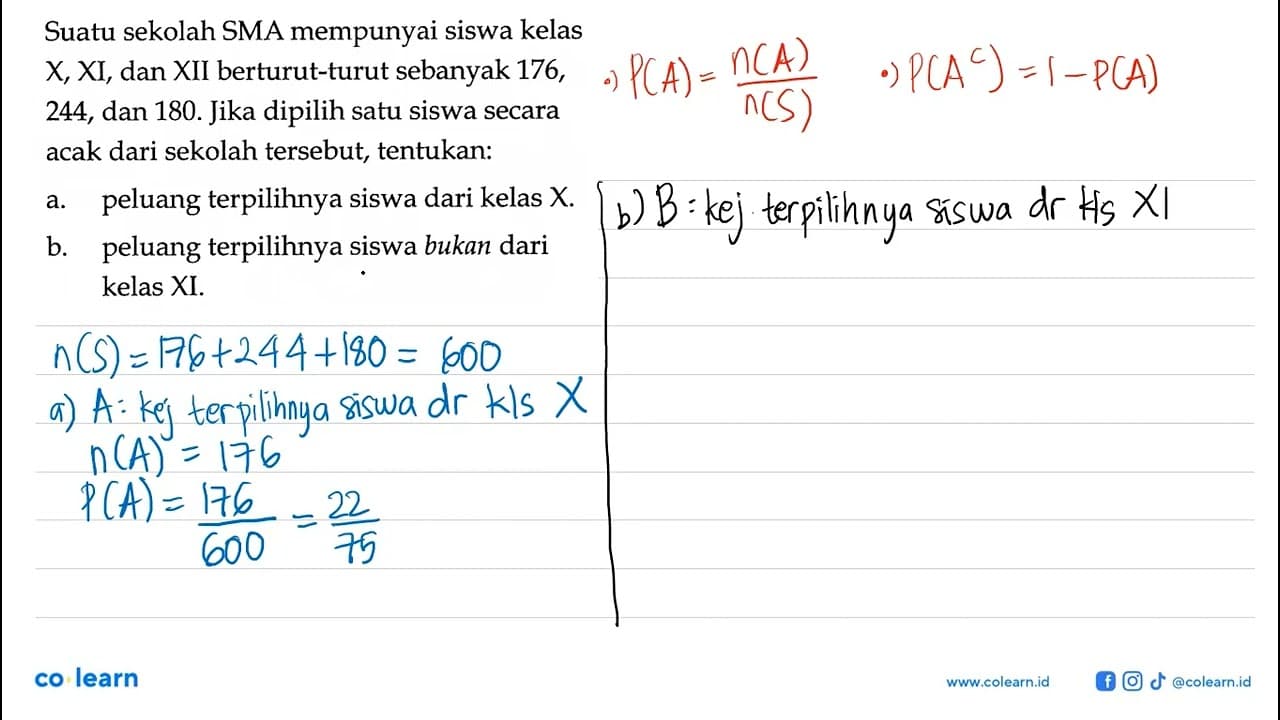 Suatu sekolah SMA mempunyai siswa kelas
X, XI, dan XII berturut-turut sebanyak 176,
244, dan 180. Jika dipilih satu siswa secara
acak dari sekolah tersebut, tentukan:
a. peluang terpilihnya siswa dari kelas X.
b. peluang terpilihnya siswa bukan dari
kelas XI.
•) P(A) = n(A)/n(S) •) P(A^C) = 1 - P(A)
n(S) = 176+244+180 = 600
a) A: kej terpilihnya siswa dr kls X
n(A) = 176
P(A) = 176/600 = 22/75
b) B: kej. terpilihnya siswa dr kls XI
co learn
www.colearn.id
@colearn.id